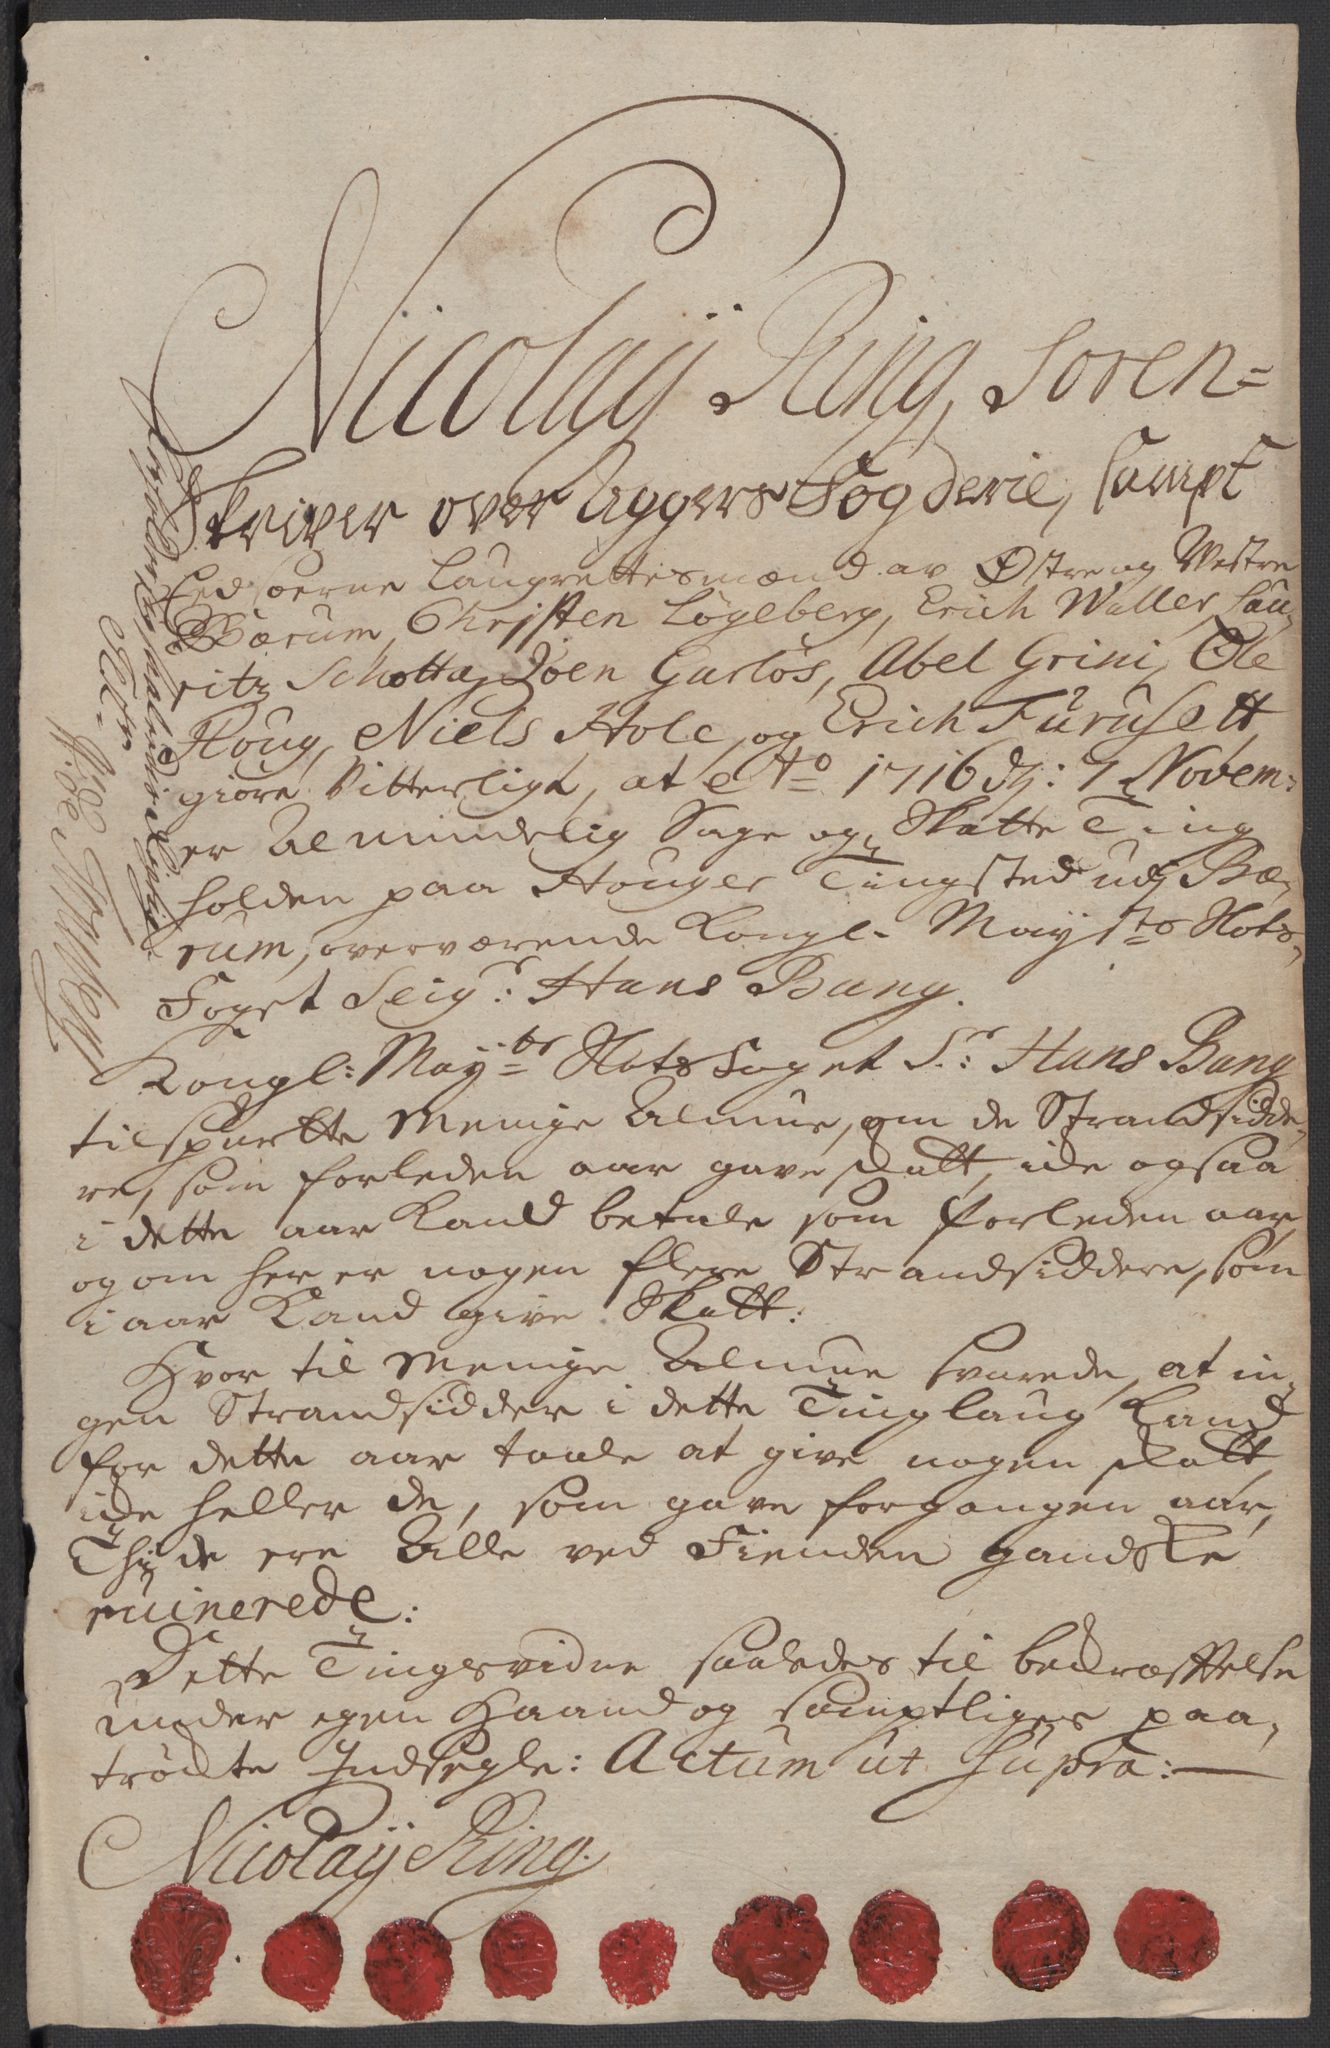 Nicolaÿ Ring, Soren=
Skriver over Aggers Fogderie, sampt
Eedsoerne Laugrettesmænd av Østre og Westre
Bærum, Christen Løgeberg, Erich Waller, Lau¬
ritz Schotta, Joen Garløs, Abel Grini, Ole
Houg, Niels Hole, og Erich Furusett
giøre Vitterligt, at Ao 1716 d: 7 Novem:
er Almindelig Sage og Skatte Ting
holden paa Houger Tingsted udj Bæ¬
rum, overværende Kongl. Mayts Slots¬
Foget Seigr: Hans Bang.
Kongl: Mayts SlotsFoget Sr: Hans Bang
tilspurtte Menige Almue, om de Strandsidde¬
re, som forleden aar gave skatt, ide ogsaa
i dette aar kand betale som forleden aar,
og om her er nogen flere Strandsiddere, som
i aar kand give Skatt:
Hvor til Menige Almue svarede, at in¬
gen Strandsidder i dette Tinglaug kand
for dette aar taale at give nogen skatt,
ide heller de, som gave forgangen aar,
Thj de ere Alle ved Fienden gandske
ruinerede:
Dette Tingsvidne saaledes til bekræfftelse
under egen Haand og samptliges paa¬
trøcte Indsegle: Actum ut supra:
Nicolaÿ Ring.